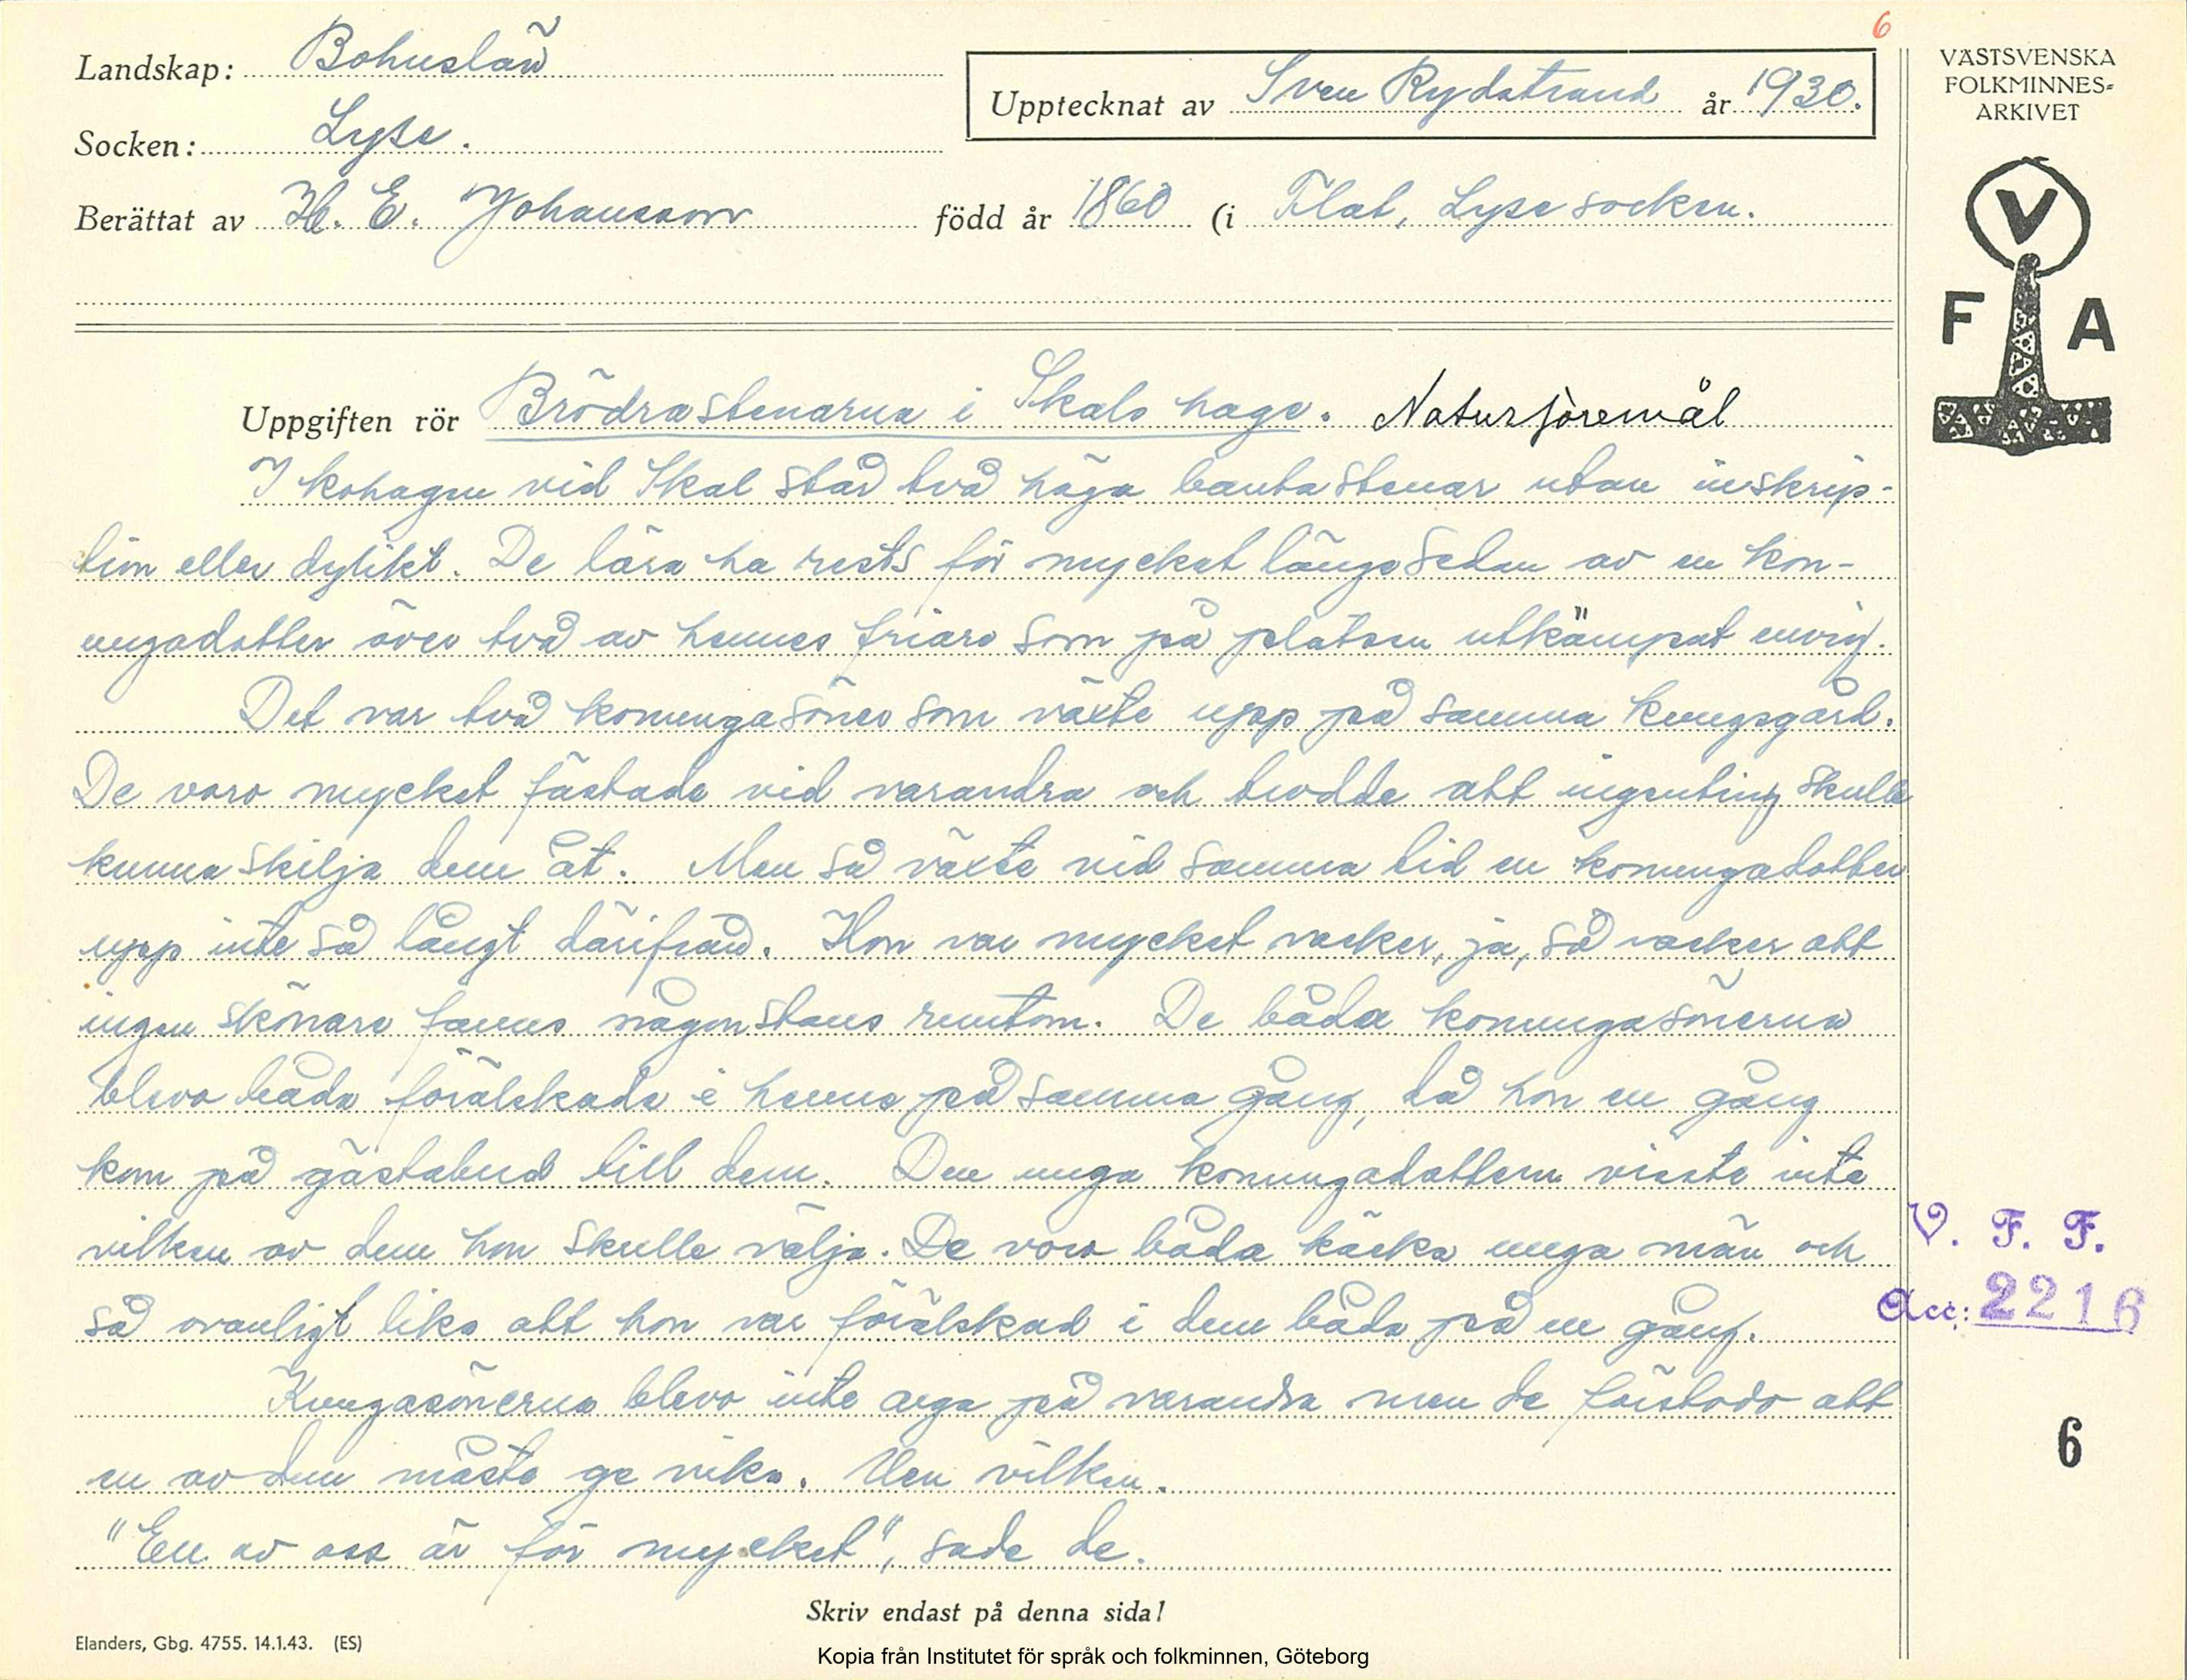 6
Landskap: Bohuslän
Socken: Lyse.
Upptecknat av Sven Rydstrand år 1930.
Berättat av H. E. Johansson född år 1860 (i Flat, Lyse socken.
VÄSTSVENSKA
FOLKMINNES-
ARKIVET
V
F A
Uppgiften rör Brödrastenarna i Skals hage. Naturföremål
I kohagen vid Skal stå två höga bautastenar utan inskrip-
tion eller dylikt. De lära ha rests för mycket länge sedan av en kon-
ungadotter över två av hennes friare som på platsen utkämpat envig.
Det var två konungasöner som växte upp på samma kungsgård.
De voro mycket fästade vid varandra och trodde att ingenting skulle
kunna skilja dem åt. Men så växte vid samma tid en konungadotter
upp inte så långt därifrån. Hon var mycket vacker, ja, så vacker att
ingen skönare fanns någonstans runtom. De båda konungasönerna
blevo båda förälskade i henne på samma gång, då hon en gång
kom på gästabud till dem. Den unga konungadottern visste inte
vilken av dem hon skulle välja. De voro båda käcka unga män och
så ovanligt lika att hon var förälskad i dem båda på en gång.
Kungasönerna blevo inte arga på varandra men de förstodo att
en av dem måste ge vika. Men vilken.
"En av oss är för mycket", sade de.
V. F. F.
Acc: 2216
6
Skriv endast på denna sida!
Elanders, Gbg. 4755. 14.1.43. (ES)
Kopia från Institutet för språk och folkminnen, Göteborg